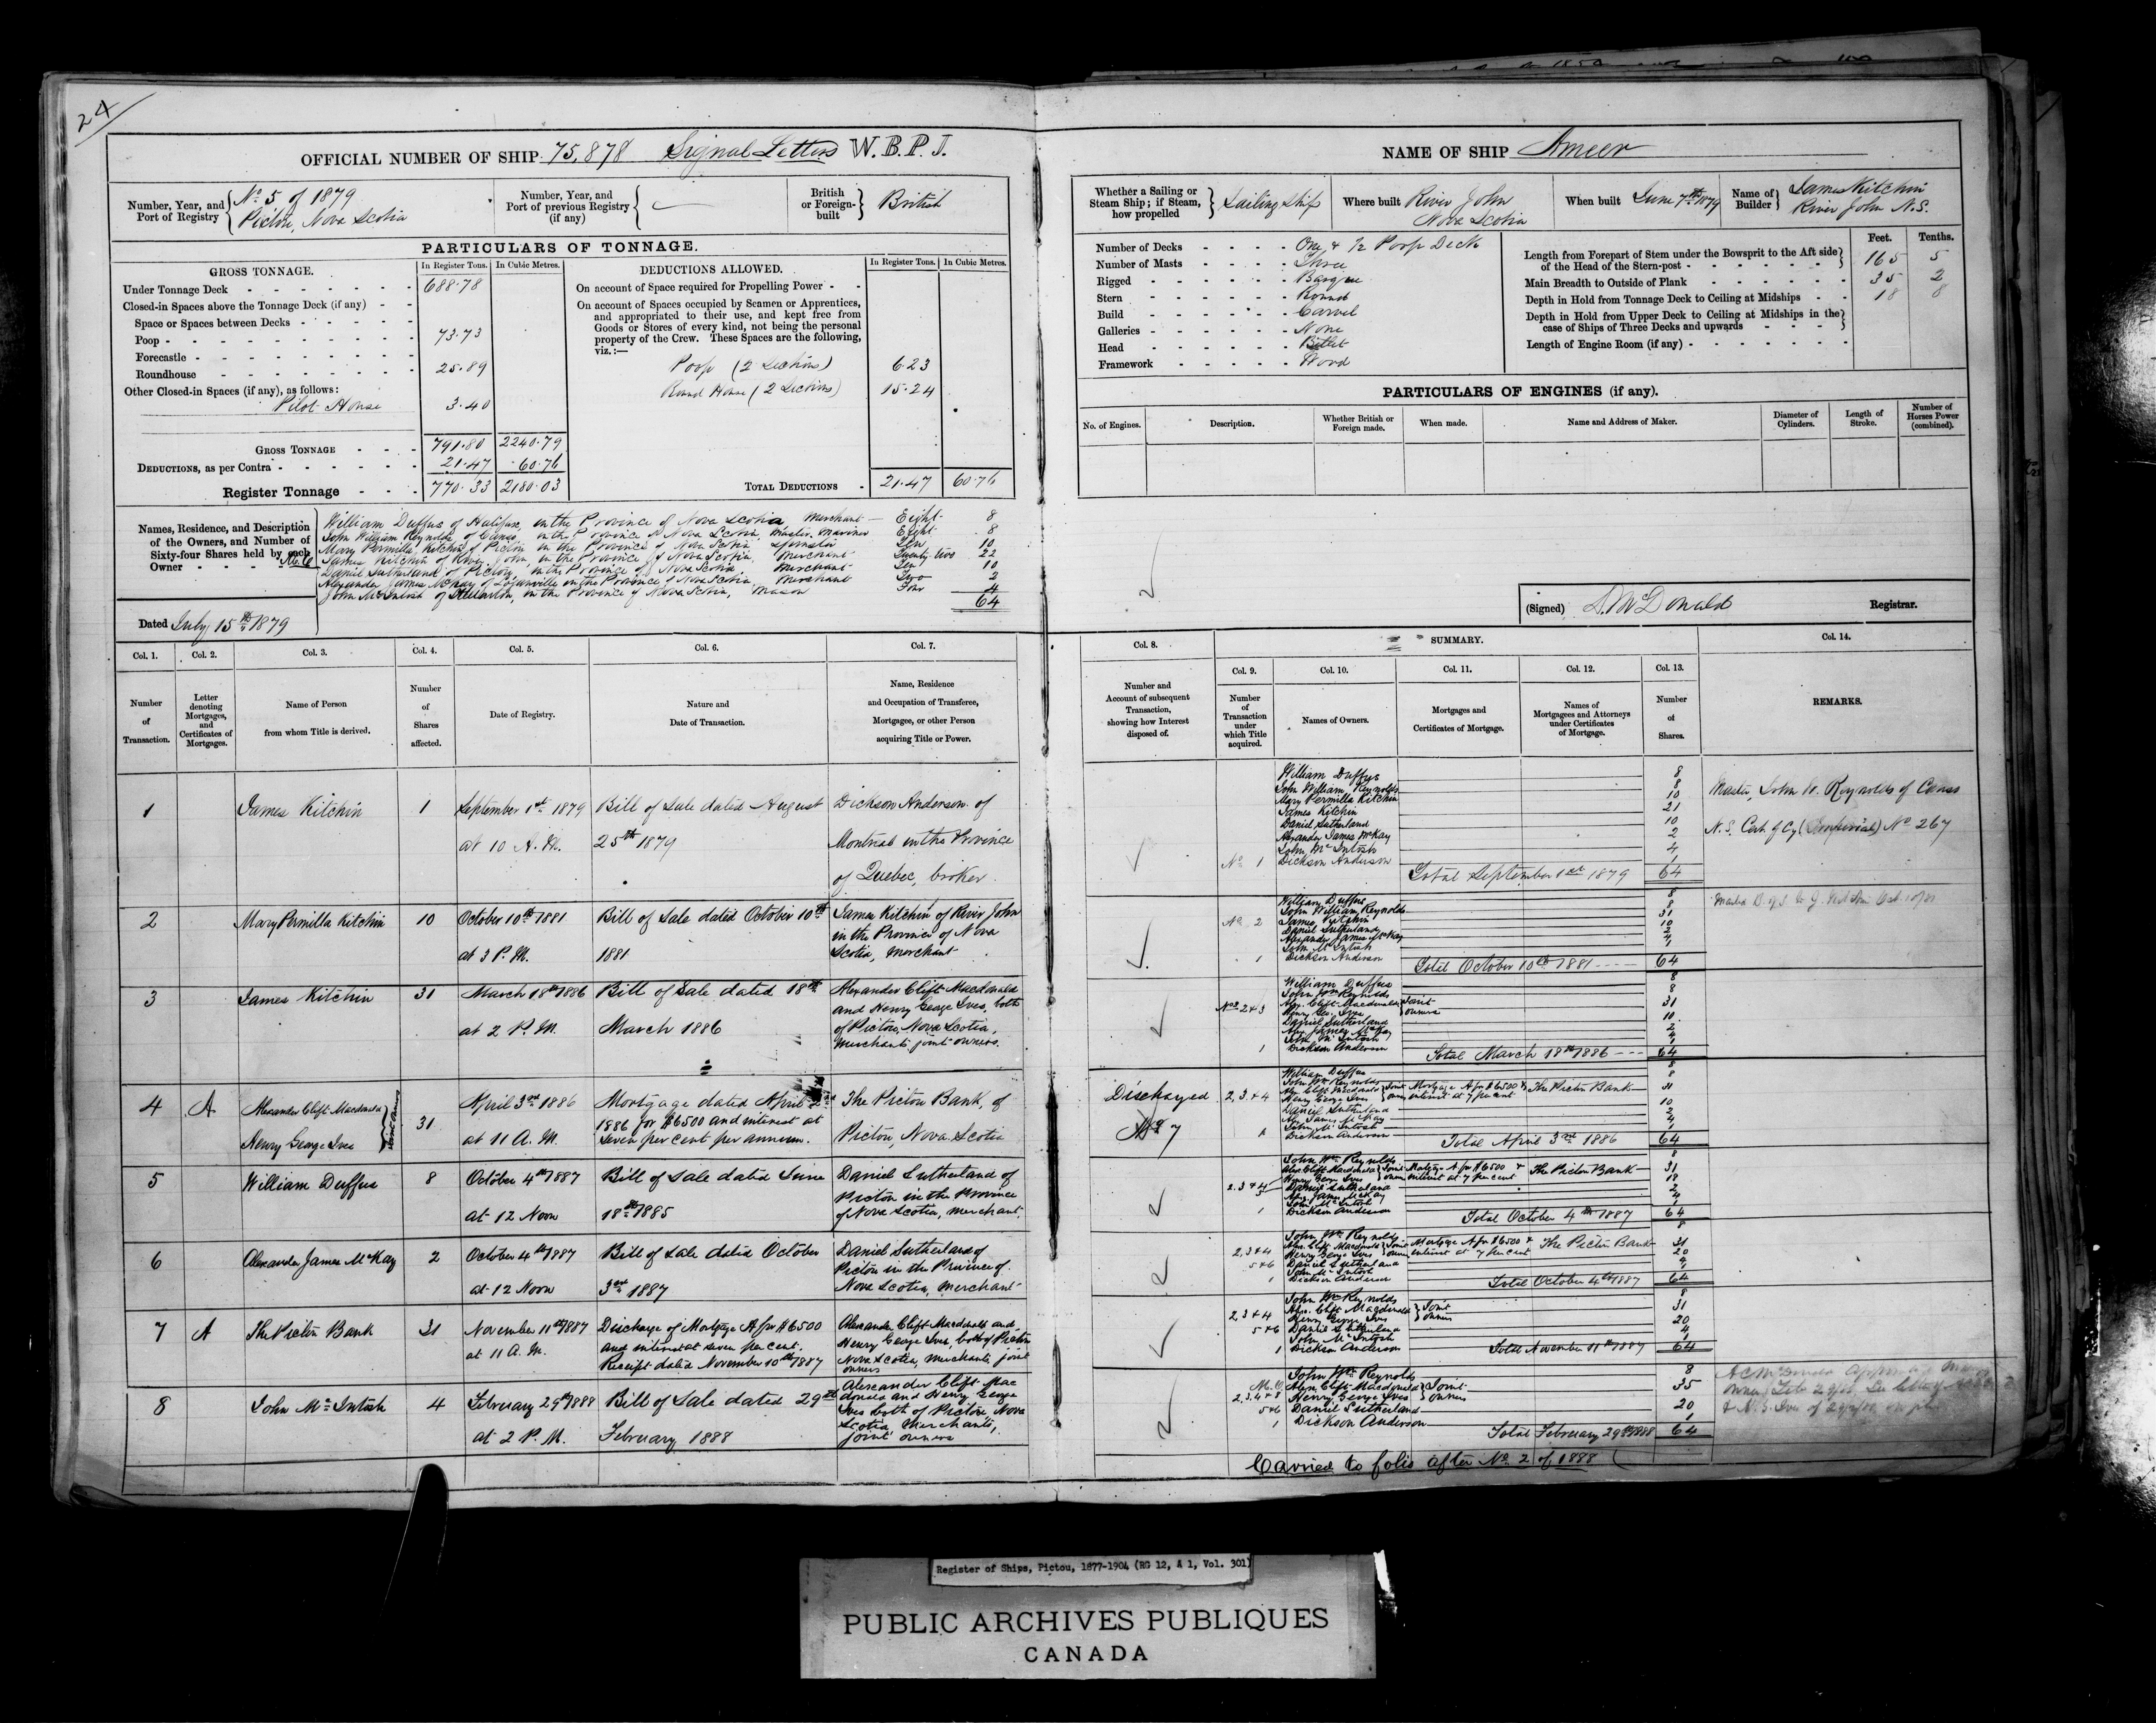 24
OFFICIAL NUMBER OF SHIP 75,878 Signal Letters W.B.P.J.
Number, Year, and Port of Registry { No 5 of 1879
Pictou, Nova Scotia
Number, Year, and Port of previous Registry (if any)
British or Foreign-built } British
PARTICULARS OF TONNAGE.
GROSS TONNAGE. In Register Tons. In Cubic Metres.
Under Tonnage Deck - 688.78
Closed-in Spaces above the Tonnage Deck (if any) - -
Space or Spaces between Decks - - - - -
Poop - 73.73
Forecastle -
Roundhouse - 25.89
Other Closed-in Spaces (if any), as follows:
Pilot House 3.40
GROSS TONNAGE - - - 791.80 2240.79
DEDUCTIONS, as per Contra - - - 21.47 60.76
Register Tonnage - - - 770.33 2180.03
DEDUCTIONS ALLOWED. In Register Tons. In Cubic Metres.
On account of Space required for Propelling Power - -
On account of Spaces occupied by Seamen or Apprentices,
and appropriated to their use, and kept free from
Goods or Stores of every kind, not being the personal
property of the Crew. These Spaces are the following,
viz.:—
Poop (2 Sections) 6.23
Round House (2 Sections) 15.24
TOTAL DEDUCTIONS - 21.47 60.76
Names, Residence, and Description of the Owners, and Number of Sixty-four Shares held by each Owner
William Duffus of Halifax, in the Province of Nova Scotia, Merchant - Eight 8
John William Reynolds of Canso, in the Province of Nova Scotia, Master Mariner Eight 8
Mary Permilla Kitchin of Pictou in the Province of Nova Scotia Spinster Ten 10
James Kitchin of River John, in the Province of Nova Scotia, Merchant Twenty two 22
Daniel Sutherland of Pictou, in the Province of Nova Scotia Merchant Ten 10
Alexander James McKay of in the Province of Nova Scotia Merchant Two 2
John McIntosh of in the Province of Nova Scotia, Mason Four 4
64
Dated July 15th 1879
Col. 1. Col. 2. Col. 3. Col. 4. Col. 5. Col. 6. Col. 7.
Number of Transaction.
Letter denoting Mortgages, and Certificates of Mortgages.
Name of Person from whom Title is derived.
Number of Shares affected.
Date of Registry.
Nature and Date of Transaction.
Name, Residence and Occupation of Transferee, Mortgagee, or other Person acquiring Title or Power.
1 James Kitchin 1 September 1st 1879 Bill of Sale dated August Dickson Anderson of
at 10 A.M. 25th 1879 Montreal in the Province
of Quebec, broker
2 Mary Permilla Kitchin 10 October 10th 1881 Bill of Sale dated October 10th James Kitchin of River John
at 3 P.M. 1881 in the Province of Nova
Scotia, Merchant
3 James Kitchin 31 March 18th 1886 Bill of Sale dated 18th Alexander Clift Macdonald
and Henry George Ives, both
at 2 P.M. March 1886 of Pictou, Nova Scotia,
Merchants joint owners.
4 A Alexander Clift Macdonald
Henry George Ives } Joint Owners 31 April 3rd 1886 Mortgage dated April 2nd The Pictou Bank, of
1886 for $6500 and interest at
at 11 A.M. Seven per cent per annum. Pictou, Nova Scotia
5 William Duffus 8 October 4th 1887 Bill of Sale dated June Daniel Sutherland of
Pictou in the Province
at 12 Noon 18th 1885 of Nova Scotia, Merchant.
6 Alexander James McKay 2 October 4th 1887 Bill of Sale dated October Daniel Sutherland of
Pictou in the Province of
at 12 Noon 3rd 1887 Nova Scotia, Merchant
7 A The Pictou Bank 31 November 11th 1887 Discharge of Mortgage A for $6500 Alexander Clift Macdonald and
at 11 A.M. and interest at seven per cent. Henry George Ives, both of Pictou
Receipt dated November 10th 1887 Nova Scotia, Merchants, joint
owners
8 John McIntosh 4 February 29th 1888 Bill of Sale dated 29th Alexander Clift Mac
donald and Henry George
Ives both of Pictou Nova
at 2 P.M. February 1888 Scotia Merchants,
joint owners
NAME OF SHIP Ameer
Whether a Sailing or Steam Ship; if Steam, how propelled } Sailing Ship
Where built River John
Nova Scotia
When built June 7th 1879
Name of Builder } James Kitchin
River John N.S.
Number of Decks - - - - One & 1/2 Poop Deck
Number of Masts - - - - Three
Rigged - - - - Barque
Stern - - - - Round
Build - - - - Carvel
Galleries - - - - None
Head - - - - Billet
Framework - - - - Wood
Feet. Tenths.
Length from Forepart of Stem under the Bowsprit to the Aft side
of the Head of the Stern-post - 165 5
Main Breadth to Outside of Plank - 35 2
Depth in Hold from Tonnage Deck to Ceiling at Midships - - 18 8
Depth in Hold from Upper Deck to Ceiling at Midships in the
case of Ships of Three Decks and upwards - - -
Length of Engine Room (if any) -
PARTICULARS OF ENGINES (if any).
No. of Engines. Description. Whether British or Foreign made. When made. Name and Address of Maker. Diameter of Cylinders. Length of Stroke. Number of Horses Power (combined).
(Signed) D. McDonald Registrar.
Col. 8. SUMMARY. Col. 14.
Col. 9. Col. 10. Col. 11. Col. 12. Col. 13.
Number and Account of subsequent Transaction, showing how Interest disposed of.
Number of Transaction under which Title acquired.
Names of Owners.
Mortgages and Certificates of Mortgage.
Names of Mortgagees and Attorneys under Certificates of Mortgage.
Number of Shares.
REMARKS.
William Duffus 8
John William Reynolds 8
Mary Permilla Kitchin 10
James Kitchin 21
Daniel Sutherland 10
Alexander James McKay 2
John McIntosh 4
No 1 Dickson Anderson 1
Total September 1st 1879 64
Master, John W. Reynolds of Canso
N.S. Cert of Cy (Imperial) No 267
William Duffus 8
John William Reynolds 8
No 2 James Kitchin 31
Daniel Sutherland 10
Alexander James McKay 2
John McIntosh 4
1 Dickson Anderson 1
Total October 10th 1881 64
William Duffus 8
John Wm Reynolds 8
Nos 2 & 3 Alex. Clift Macdonald
Henry Geo. Ives } Joint owners 31
Daniel Sutherland 10
Alex. James McKay 2
John McIntosh 4
1 Dickson Anderson 1
Total March 18th 1886 64
Discharged
No 7
William Duffus 8
John Wm Reynolds 8
2, 3 & 4 Alex Clift Macdonald
Henry George Ives } Joint Mortgage A for $6500 & interest at 7 per cent The Pictou Bank 31
Daniel Sutherland 10
Alex James McKay 2
John McIntosh 4
1 Dickson Anderson 1
Total April 3rd 1886 64
John Wm Reynolds 8
2.3 & 4 Alex Clift Macdonald
Henry George Ives } Joint owners Mortgage A for $6500 & interest at 7 per cent The Pictou Bank 31
5 Daniel Sutherland 18
Alex James McKay 2
John McIntosh 4
1 Dickson Anderson 1
Total October 4th 1887 64
John Wm Reynolds 8
2, 3 & 4 Alex. Clift Macdonald
Henry George Ives } Joint owners Mortgage A for $6500 & interest at 7 per cent The Pictou Bank 31
5 & 6 Daniel Sutherland 20
John McIntosh 4
1 Dickson Anderson 1
Total October 4th 1887 64
John Wm Reynolds 8
2, 3 & 4 Alex. Clift Macdonald
Henry George Ives } Joint owners 31
5 & 6 Daniel Sutherland 20
John McIntosh 4
1 Dickson Anderson 1
Total November 11th 1887 64
John Wm Reynolds 8
2, 3, 4 & 8 Alex. Clift Macdonald
Henry George Ives } Joint owners 35
5 & 6 Daniel Sutherland 20
1 Dickson Anderson 1
Total February 29th 1888 64
Carried to folio after No 2 of 1888
Register of Ships, Pictou, 1877-1904 (RG 12, A 1, Vol. 301)
PUBLIC ARCHIVES PUBLIQUES
CANADA